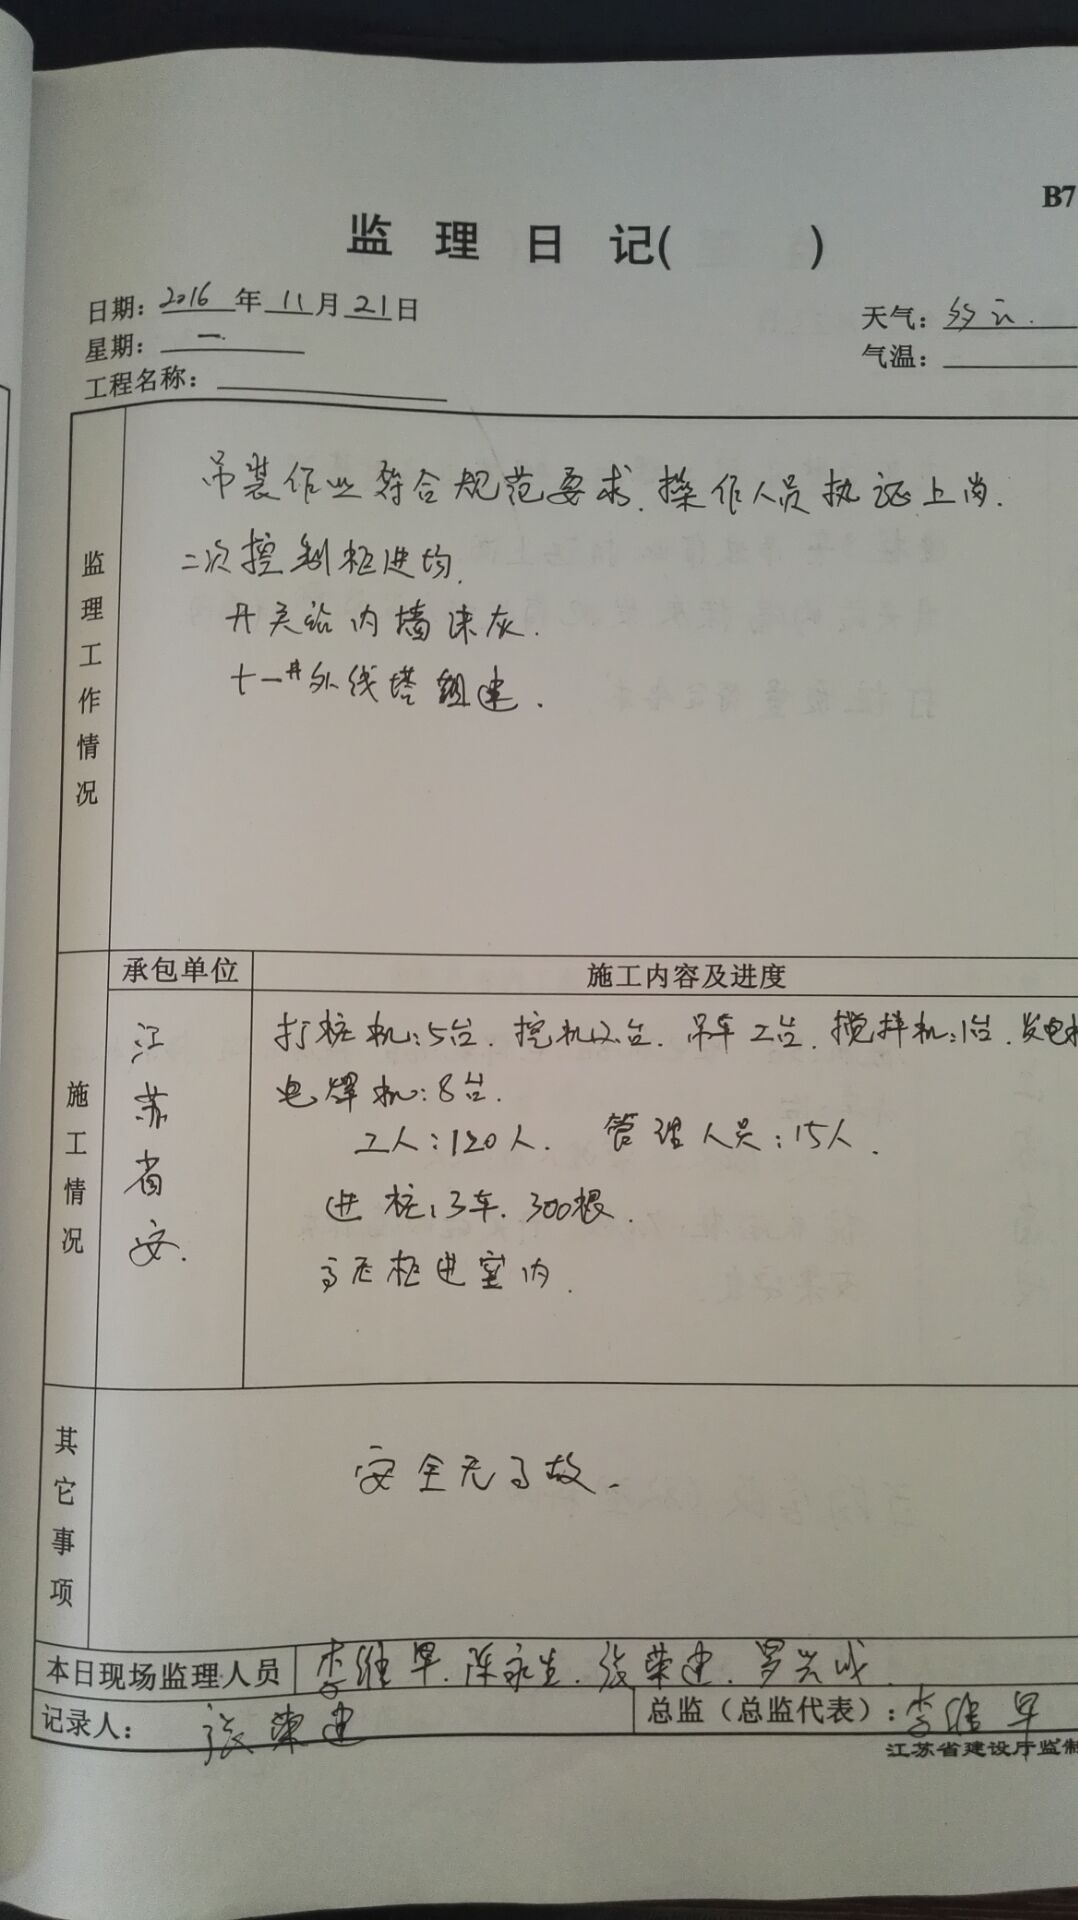 B7
监 理 日 记( )
日期：2016 年 11 月 21 日
天气：多云.
星期：一.
气温：
工程名称：
监理工作情况
吊装作业符合规范要求、操作人员执证上岗.
二次控制柜进场.
开关站内墙涂灰.
十一#外线塔组建.
施工情况
承包单位
施工内容及进度
江苏省安.
打桩机:5台. 挖机2台. 吊车2台. 搅拌机:1台. 发电机
电焊机:8台.
工人:120人. 管理人员:15人.
进桩:3车. 300根.
高压柜进室内.
其它事项
安全无事故.
本日现场监理人员 李维早. 陈永生. 张荣建. 罗兴成.
记录人： 张荣建
总监（总监代表）：李维早
江苏省建设厅监制